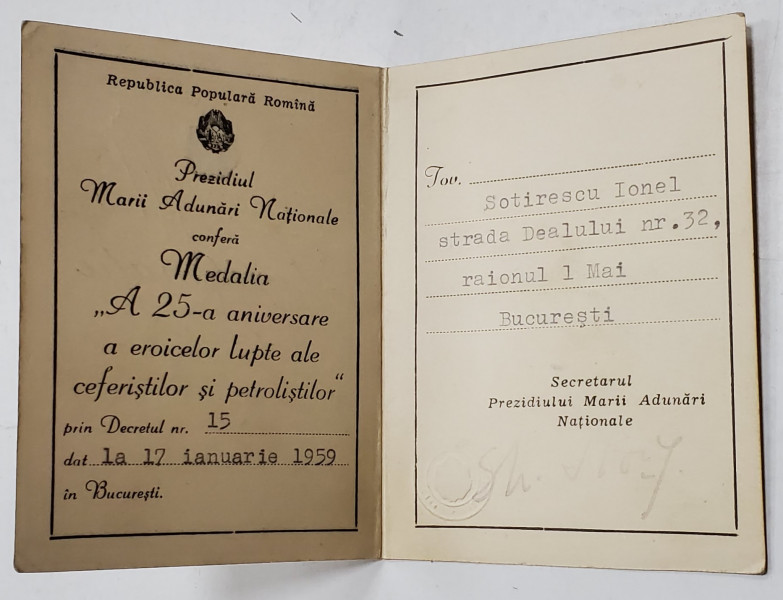 Republica Populară Romînă
Prezidiul
Marii Adunări Naționale
conferă
Medalia
„A 25-a aniversare
a eroicelor lupte ale
ceferiștilor și petroliștilor“
prin Decretul nr. 15
dat la 17 ianuarie 1959
în București.
Tov.
Sotirescu Ionel
strada Dealului nr.32,
raionul 1 Mai
București
Secretarul
Prezidiului Marii Adunări
Naționale